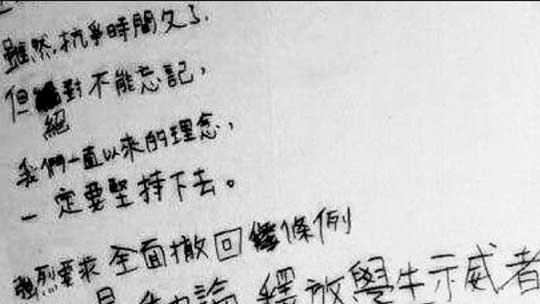 雖然,抗爭時間久了,
但絕對不能忘記,
我們一直以來的理念,
一定要堅持下去。
強烈要求 全面撤回條例
釋放學生示威者